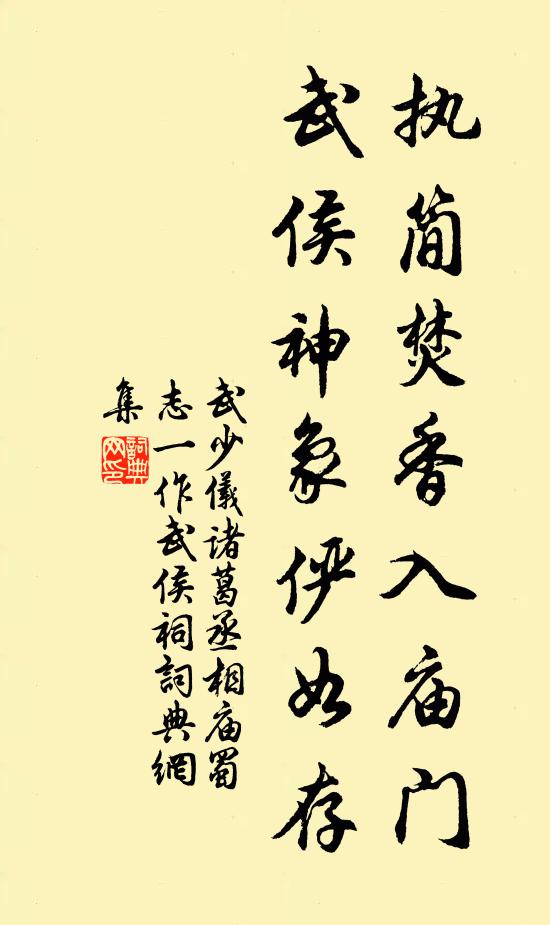 执简焚香入庙门
武侯神象俨如存
武少儀诸葛丞相庙蜀
志一作武侯祠詞典網
集
詞典
网印